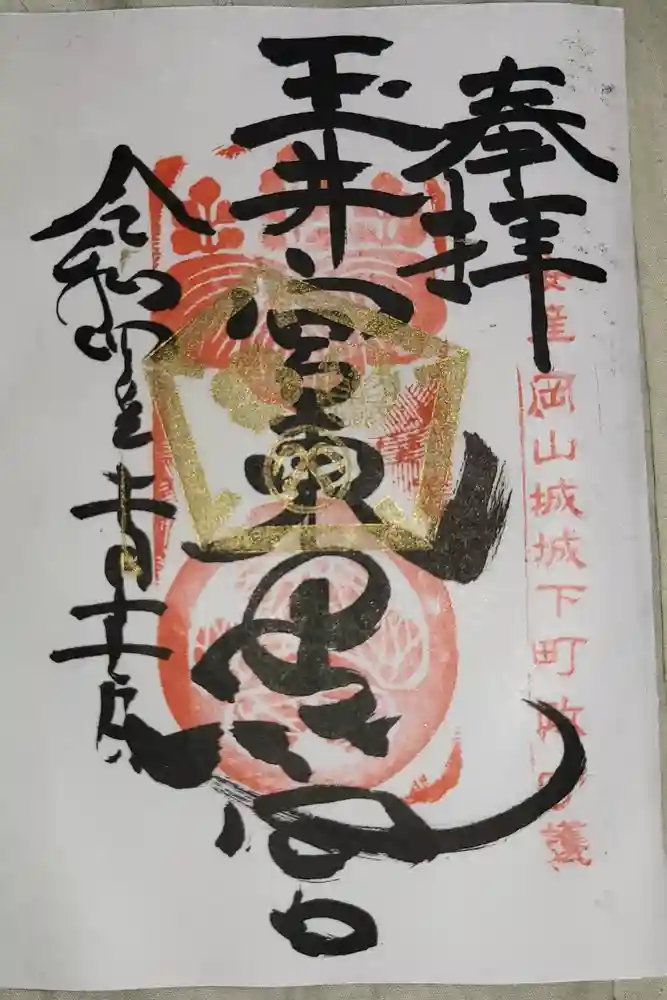 奉拝
岡山城城下町
玉井宮東照宮
令和四年十一月十二日